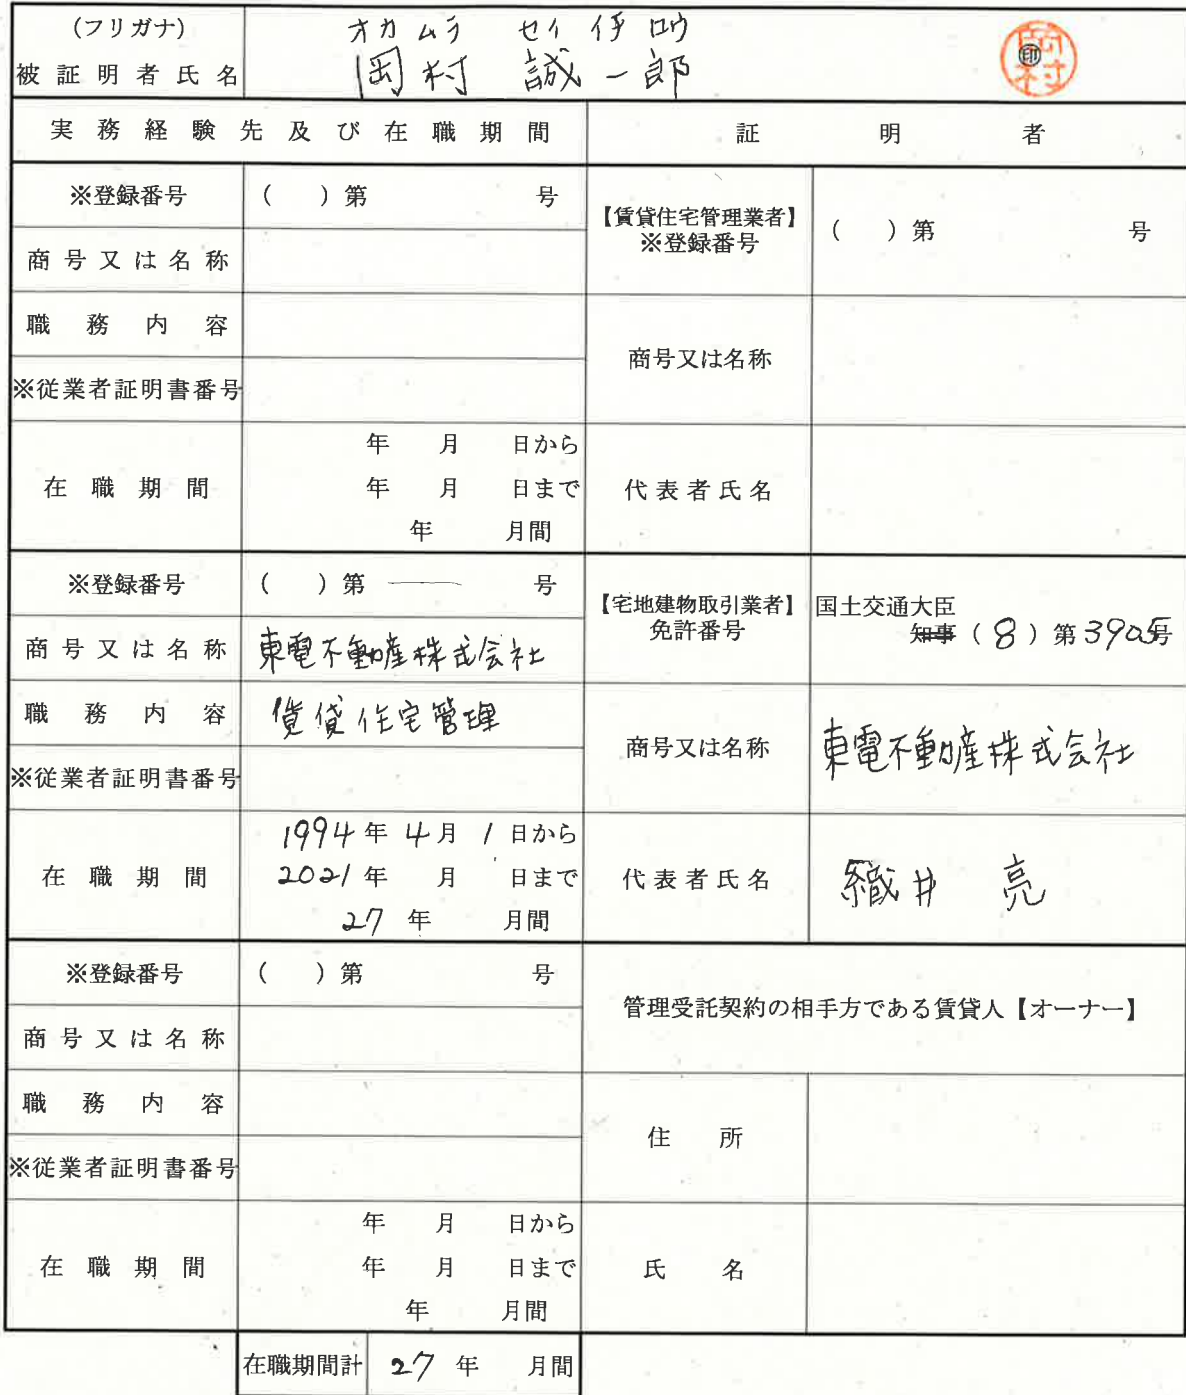 (フリガナ) オカムラ セイイチロウ
被証明者氏名 岡村 誠一郎 ㊞ 岡村
実務経験先及び在職期間 証明者
※登録番号 ( )第 号
商号又は名称
職務内容
※従業者証明書番号
在職期間
年 月 日から
年 月 日まで
年 月間
【賃貸住宅管理業者】
※登録番号 ( )第 号
商号又は名称
代表者氏名
※登録番号 ( )第 ― 号
商号又は名称 東電不動産株式会社
職務内容 賃貸住宅管理
※従業者証明書番号
在職期間
1994年 4月 1日から
2021年 月 日まで
27年 月間
【宅地建物取引業者】
免許番号
国土交通大臣
知事 (8)第3905号
商号又は名称 東電不動産株式会社
代表者氏名 織井 亮
※登録番号 ( )第 号
商号又は名称
職務内容
※従業者証明書番号
在職期間
年 月 日から
年 月 日まで
年 月間
管理受託契約の相手方である賃貸人【オーナー】
住所
氏名
在職期間計 27年 月間